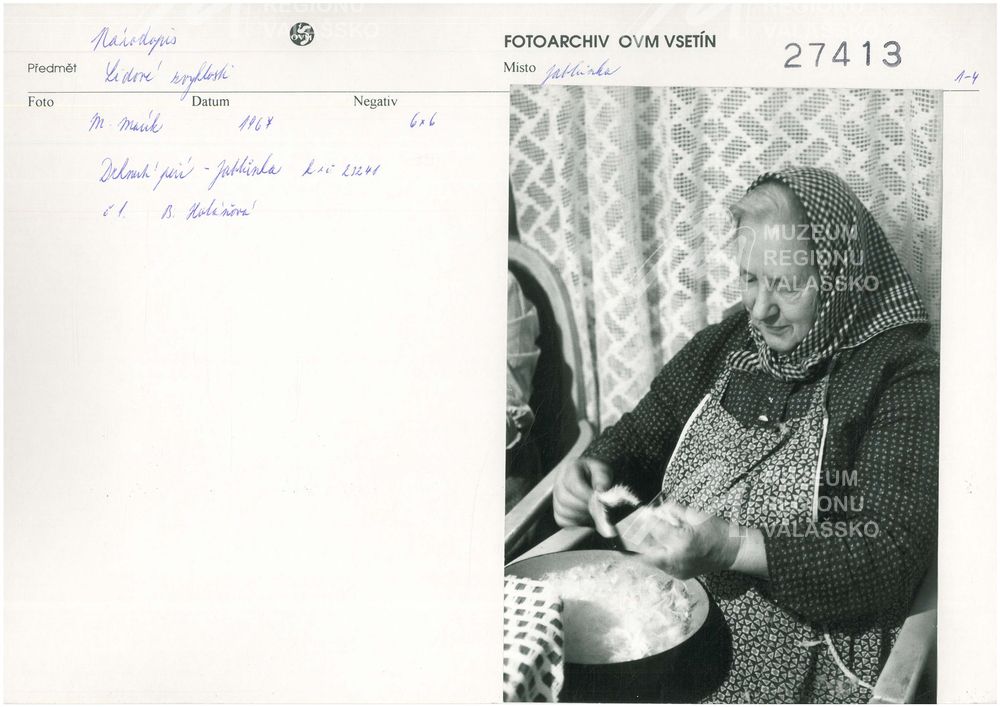 Národopis
FOTOARCHIV OVM VSETÍN
27413
Předmět Lidové zvyklosti
Místo Jablůnka
1-4
Foto Datum Negativ
M. 1967 6x6
Jablůnka 23241
č 1. B.
MUZEUM
REGIONU
VALAŠSKO
MUZEUM
REGIONU
VALAŠSKO